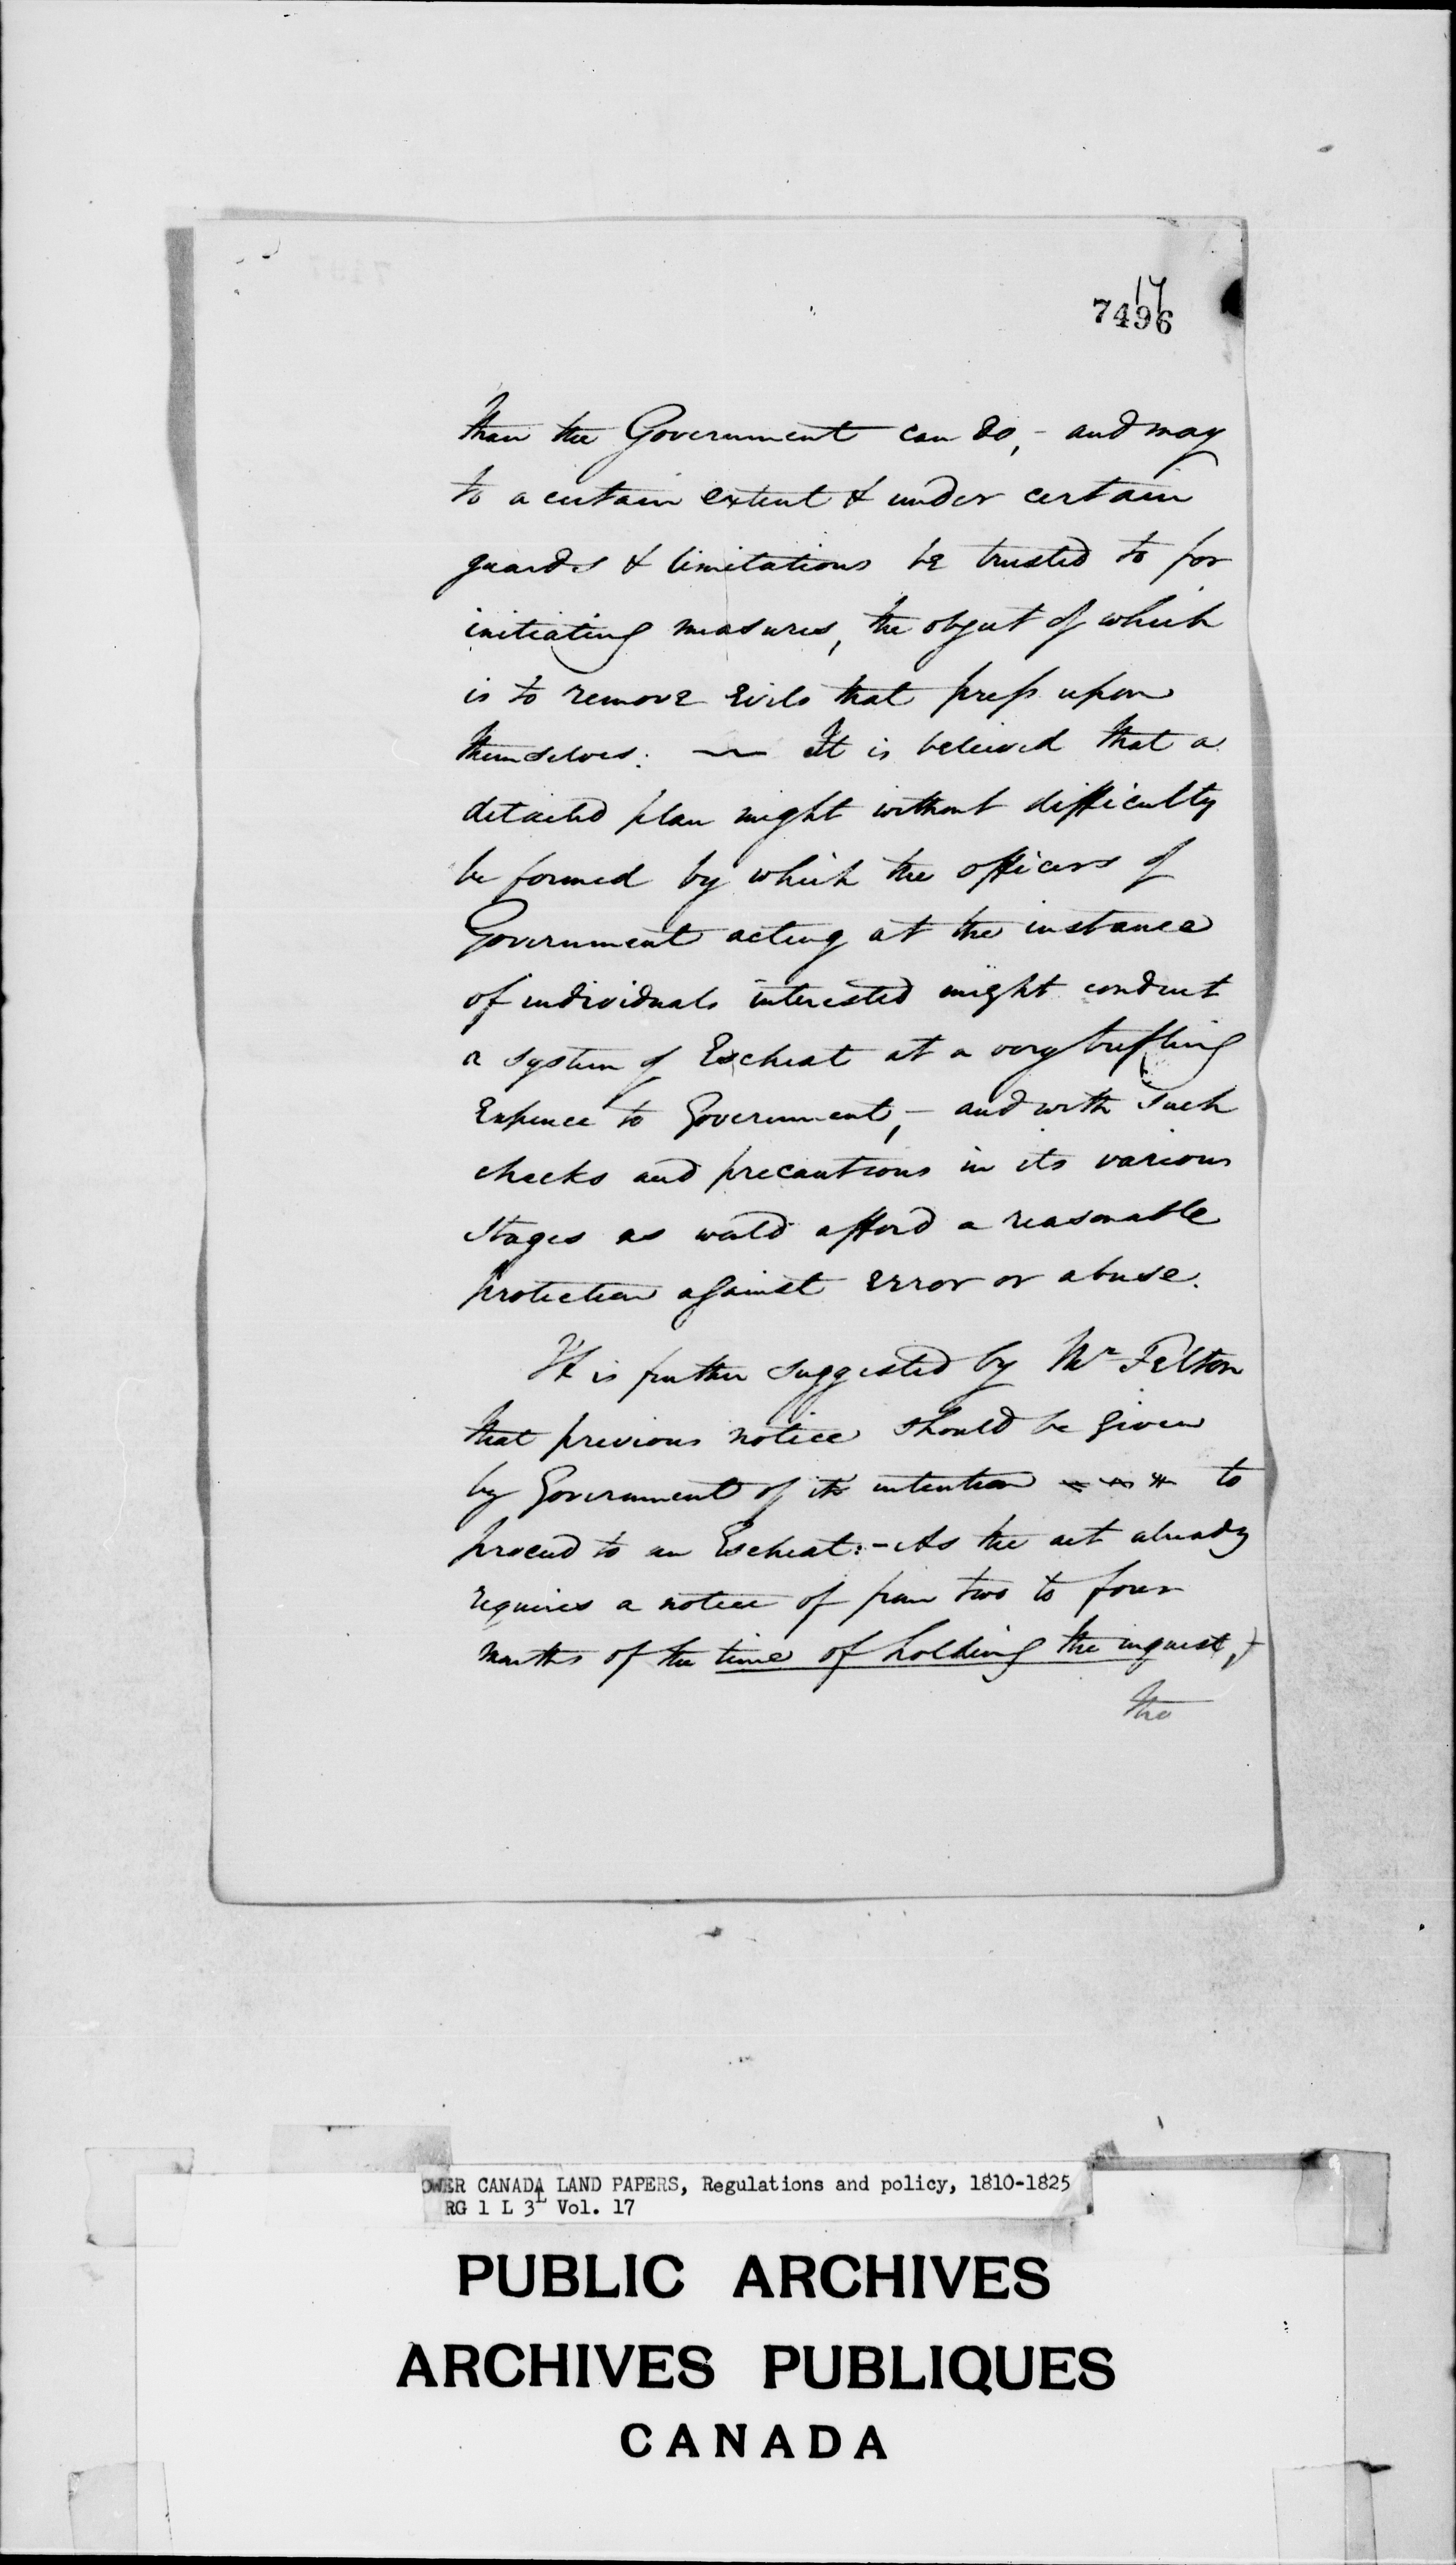 17
7496
than the Government can do, - and may
to a certain extent & under certain
guards & limitations be trusted to for
initiating measures, the object of which
is to remove evils that press upon
themselves. — It is believed that a
detailed plan might without difficulty
be formed by which the officers of
Government acting at the instance
of individuals interested might conduct
a system of Escheat at a very trifling
Expence to Government, - and with such
checks and precautions in its various
stages as would afford a reasonable
protection against error or abuse.
It is further suggested by Mr Felton
that previous notice should be given
by Government of its intention to
proceed to an Escheat: - As the act already
requires a notice of from two to four
months of the time of holding the inquest,
the
OWER CANADA LAND PAPERS, Regulations and policy, 1810-1825
RG 1 L 3L Vol. 17
PUBLIC ARCHIVES
ARCHIVES PUBLIQUES
CANADA